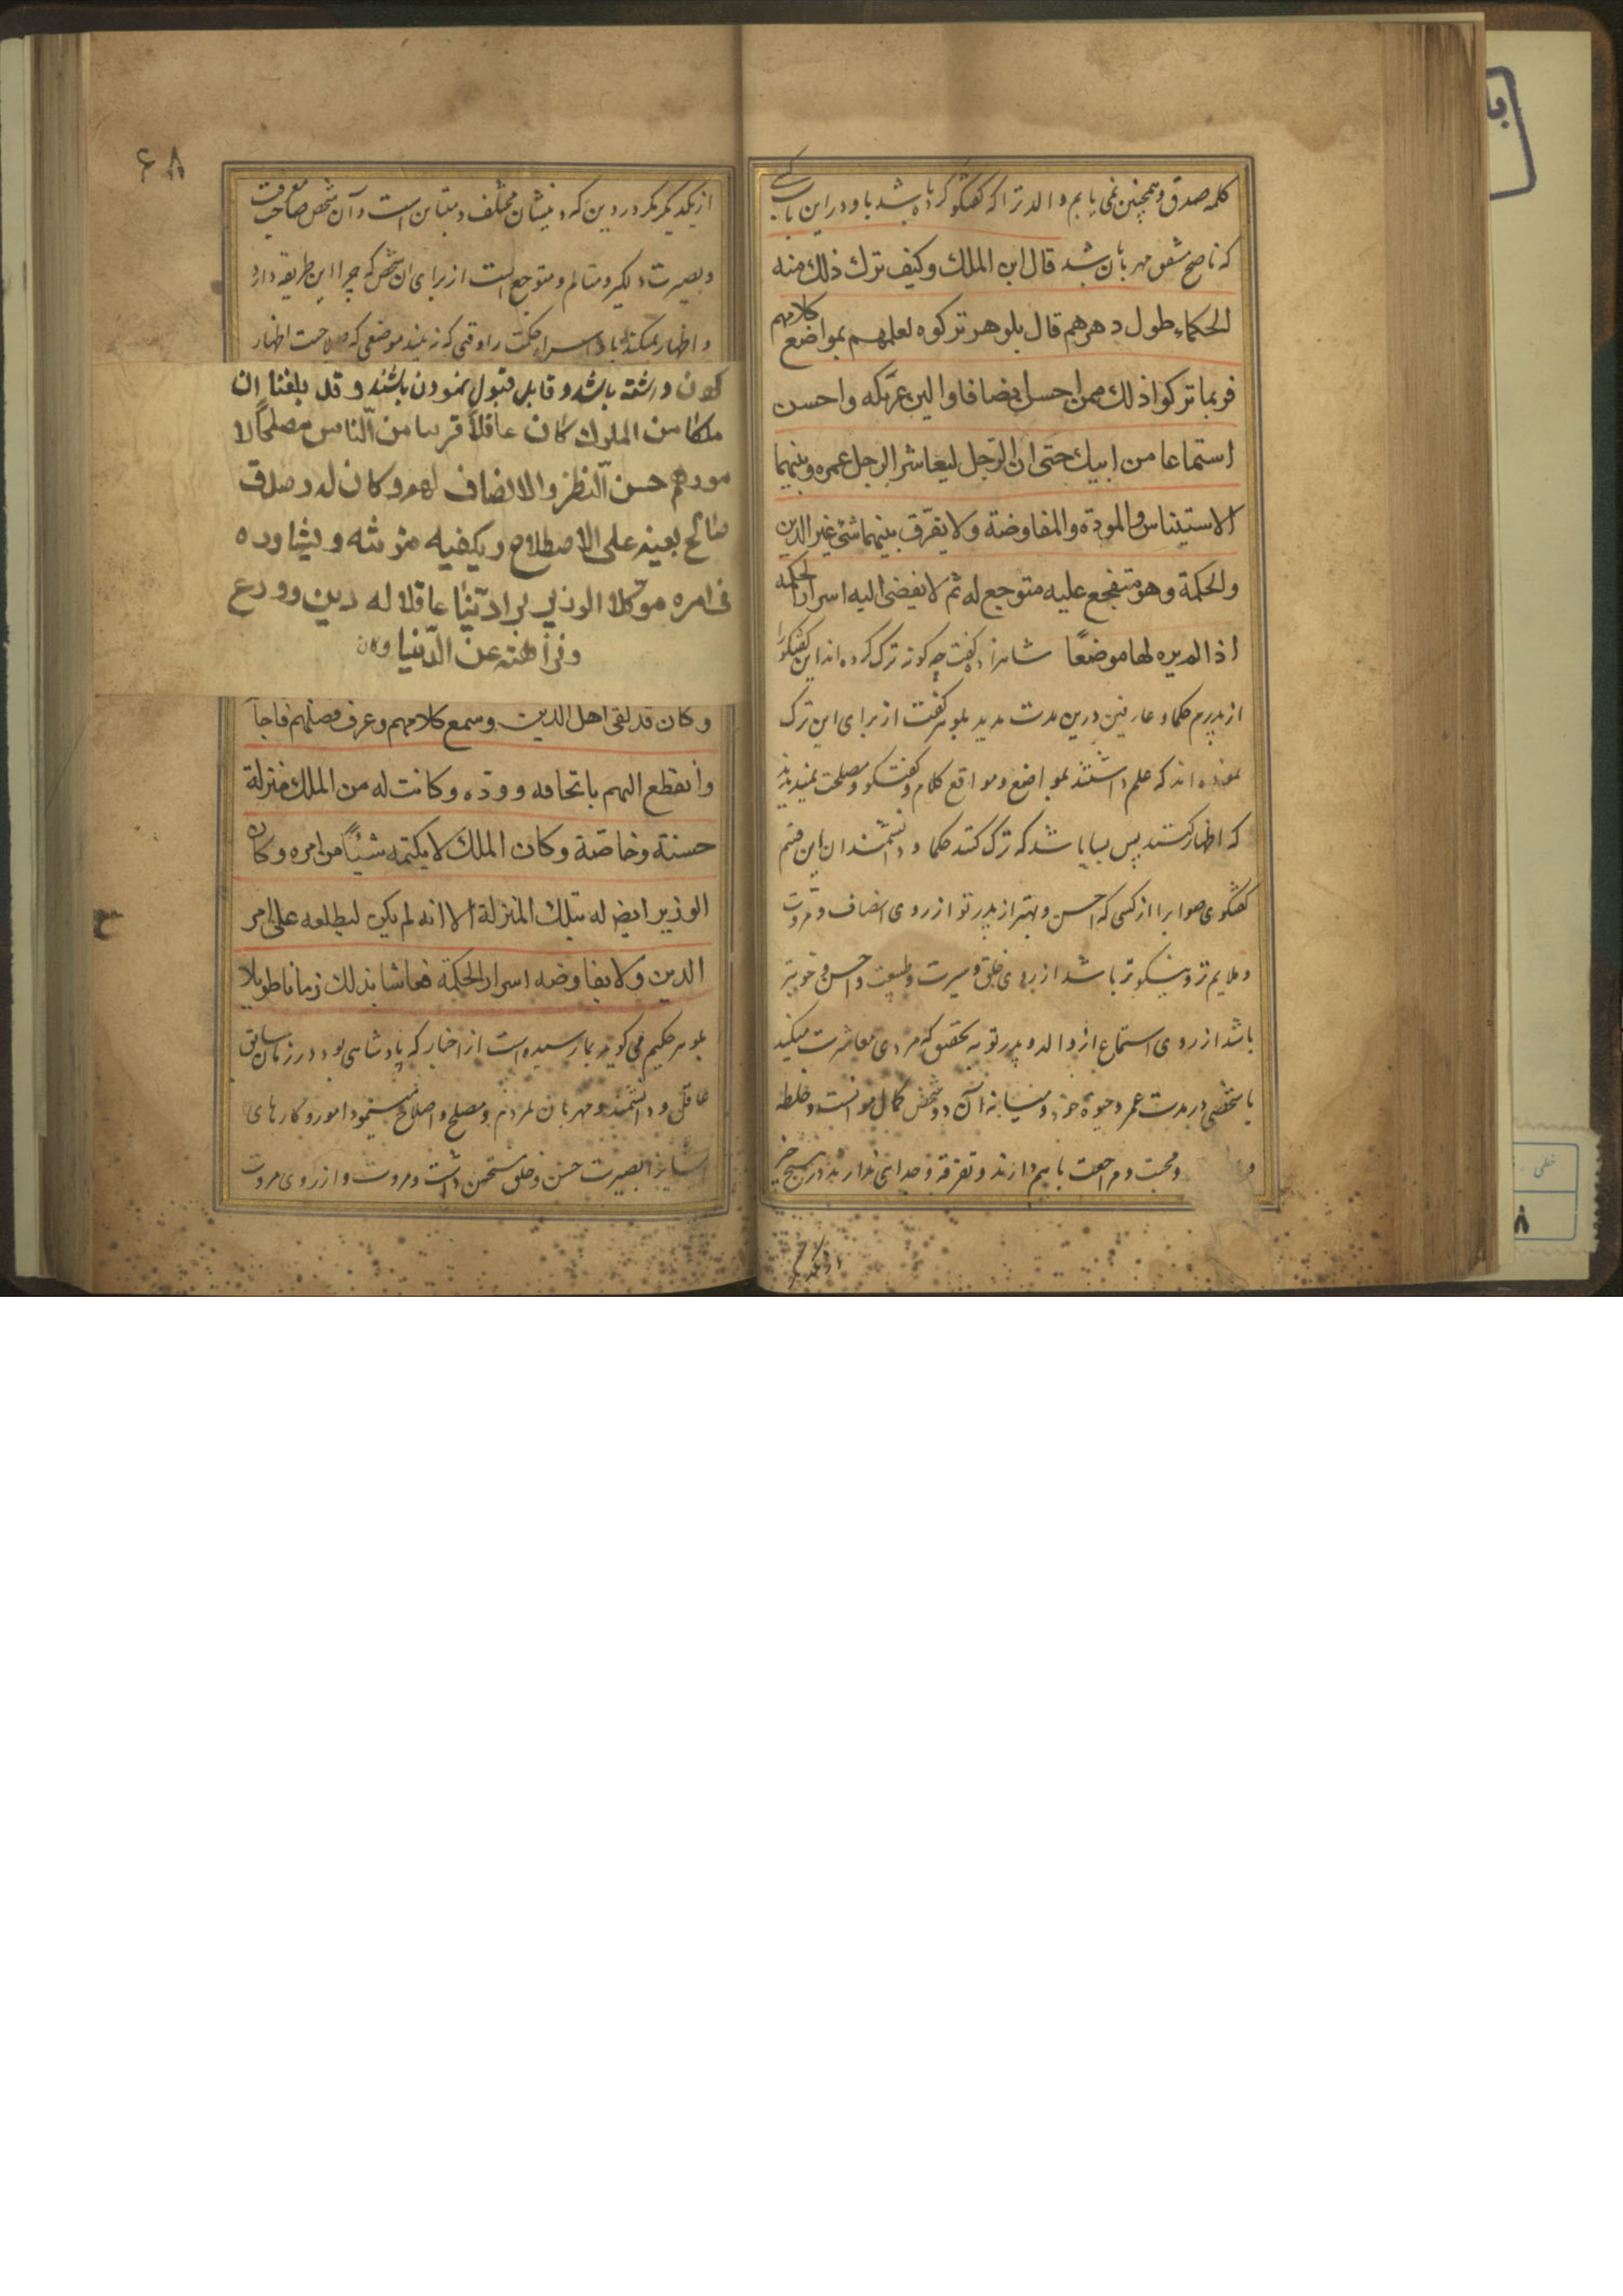 کلمه صدق و همچنین نمی یابم والد ترا که گفتگو کرده باشد با او در این باب کسی
که ناصح مشفق مهربان باشد قال ابن الملك وكيف ترك ذلك منه
الحكماء طول دهرهم قال بلوهر تركوه لعلمهم بمواضع كلامهم
فربما تركوا ذلك ممن احسن انصافا والين عريكة واحسن
استماعا من ابيك حتى ان الرجل ليعاشر الرجل عمره وبينهما
الاستيناس والمودة والمفاوضة ولا يفرّق بينهما شئ غير الدين
والحكمة وهو متفجع عليه متوجع له ثم لا يفضى اليه اسرار الحكمة
اذا لم يره لها موضعًا شاهزاده گفت چه گونه ترک کرده اند این گفتگو را
از پدرم حکما و عارفین درین مدت مدید بلوهر گفت از برای این ترک
نموده اند که علم داشتند بمواضع و مواقع کلام و گفتگو و مصلحت نمیدیدند
که اظهار کنند پس بسا باشد که ترک کنند حکما و دانشمندان این قسم
گفتگوی صواب را از کسی که احسن و بهتر از پدر تو از روی انصاف و مروت
و ملایم تر و نیکوتر باشد از روی خلق و سیرت و طبیعت و احسن و خوبتر
باشد از روی استماع از والد و پدر تو به تحقیق که مردی معاشرت میکند
با شخصی در مدت عمر و حیوة خود و میانه آن دو شخص کمال موانست و خلطه
و محبت و مراجعت با هم دارند و تفرقه و جدایی ندارند در هیچ چیز
از یکدیگر
۶۸
از یکدیگر مگر در دین که دینشان مختلف و متباین است و آن شخص صاحب معرفت
و بصیرت دلگیر و متالم و متوجع است از برای آن شخص که چرا این طریقه دارد
و اظهار نمیکند باو اسرار حکمت را وقتی که نه بیند موضعی که صلاحیت اظهار
کردن داشته باشد و قابل قبول نمودن باشند و قد بلغنا ان
ملكا من الملوك كان عاقلًا قريبا من الناس مصلحًا لا
مورهم حسن النظر والانصاف لهم وكان له وزير صدق
صالح يعينه على الاصطلاح ويكفيه مؤنته ويشاوره
فى امره موكلا الوزير اديبًا عاقلا له دين وورع
ونزاهته عن الدّنيا وكان
وكان قد لقى اهل الدين وسمع كلامهم وعرف فضلهم فاجا
وانقطع اليهم باتحافه وودّه وكانت له من الملك منزلة
حسنة وخاصّة وكان الملك لا يكتمه شيئًا من امره وكان
الوزير ايضا له بتلك المنزلة الا انه لم يكن ليطلعه على امر
الدين ولا يفاوضه اسرار الحكمة فعاشا بذلك زمانا طويلا
بلوهر حکیم می گوید بما رسیده است از اخبار که پادشاهی بود در زمان سابق
عاقل و دانشمند و مهربان بمردم و مصلح و اصلاح مینمود امور و کارهای
ایشانرا بصیرت حسن و خلق مستحسن داشت و مروت و از روی مروت